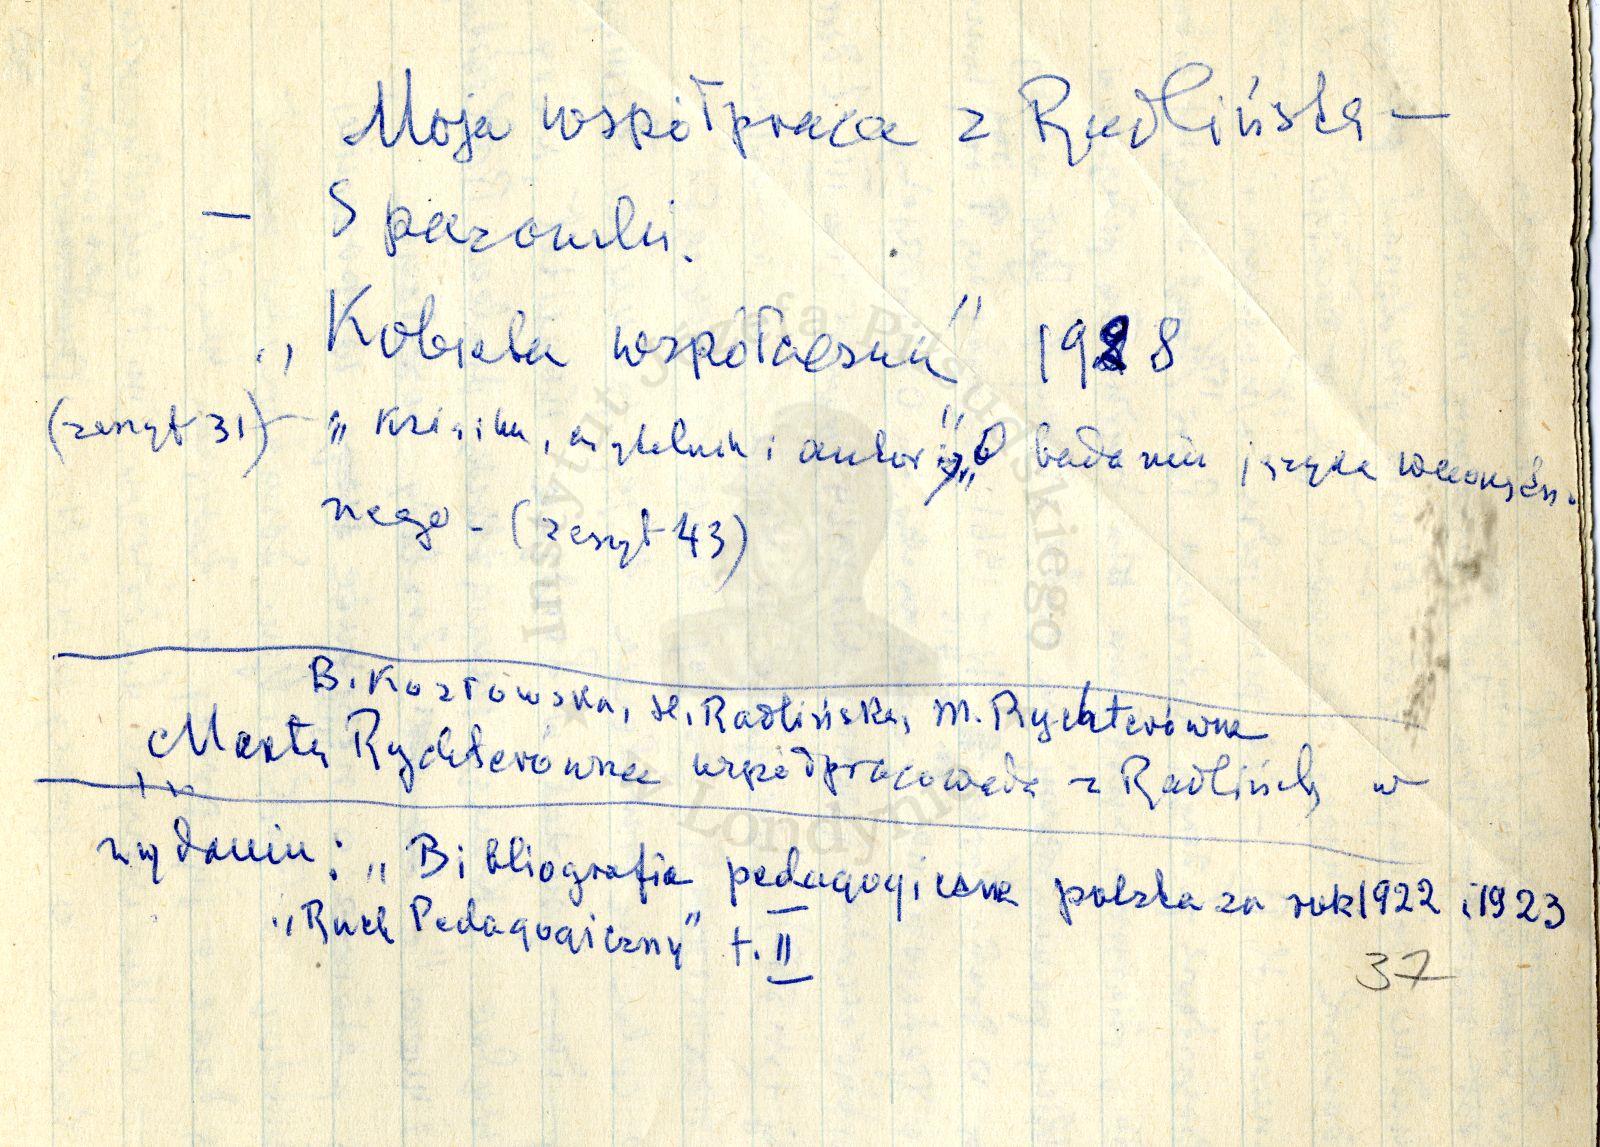 Moja współpraca z Radlińską —
— Spazowski.
„Kobieta współczesna" 1928
(zeszyt 31) — „Książka, czytelnik i autor", „O badaniu języka
nego - (zeszyt 43)
B. Kozłowska, H. Radlińska, M. Rychterówna
Marta Rychterówna współpracowała z Radlińską w
wydaniu: „Bibliografia pedagogiczna polska za rok 1922 i 1923
„Ruch Pedagogiczny" t. II
37
Instytut Józefa Piłsudskiego
w Londynie